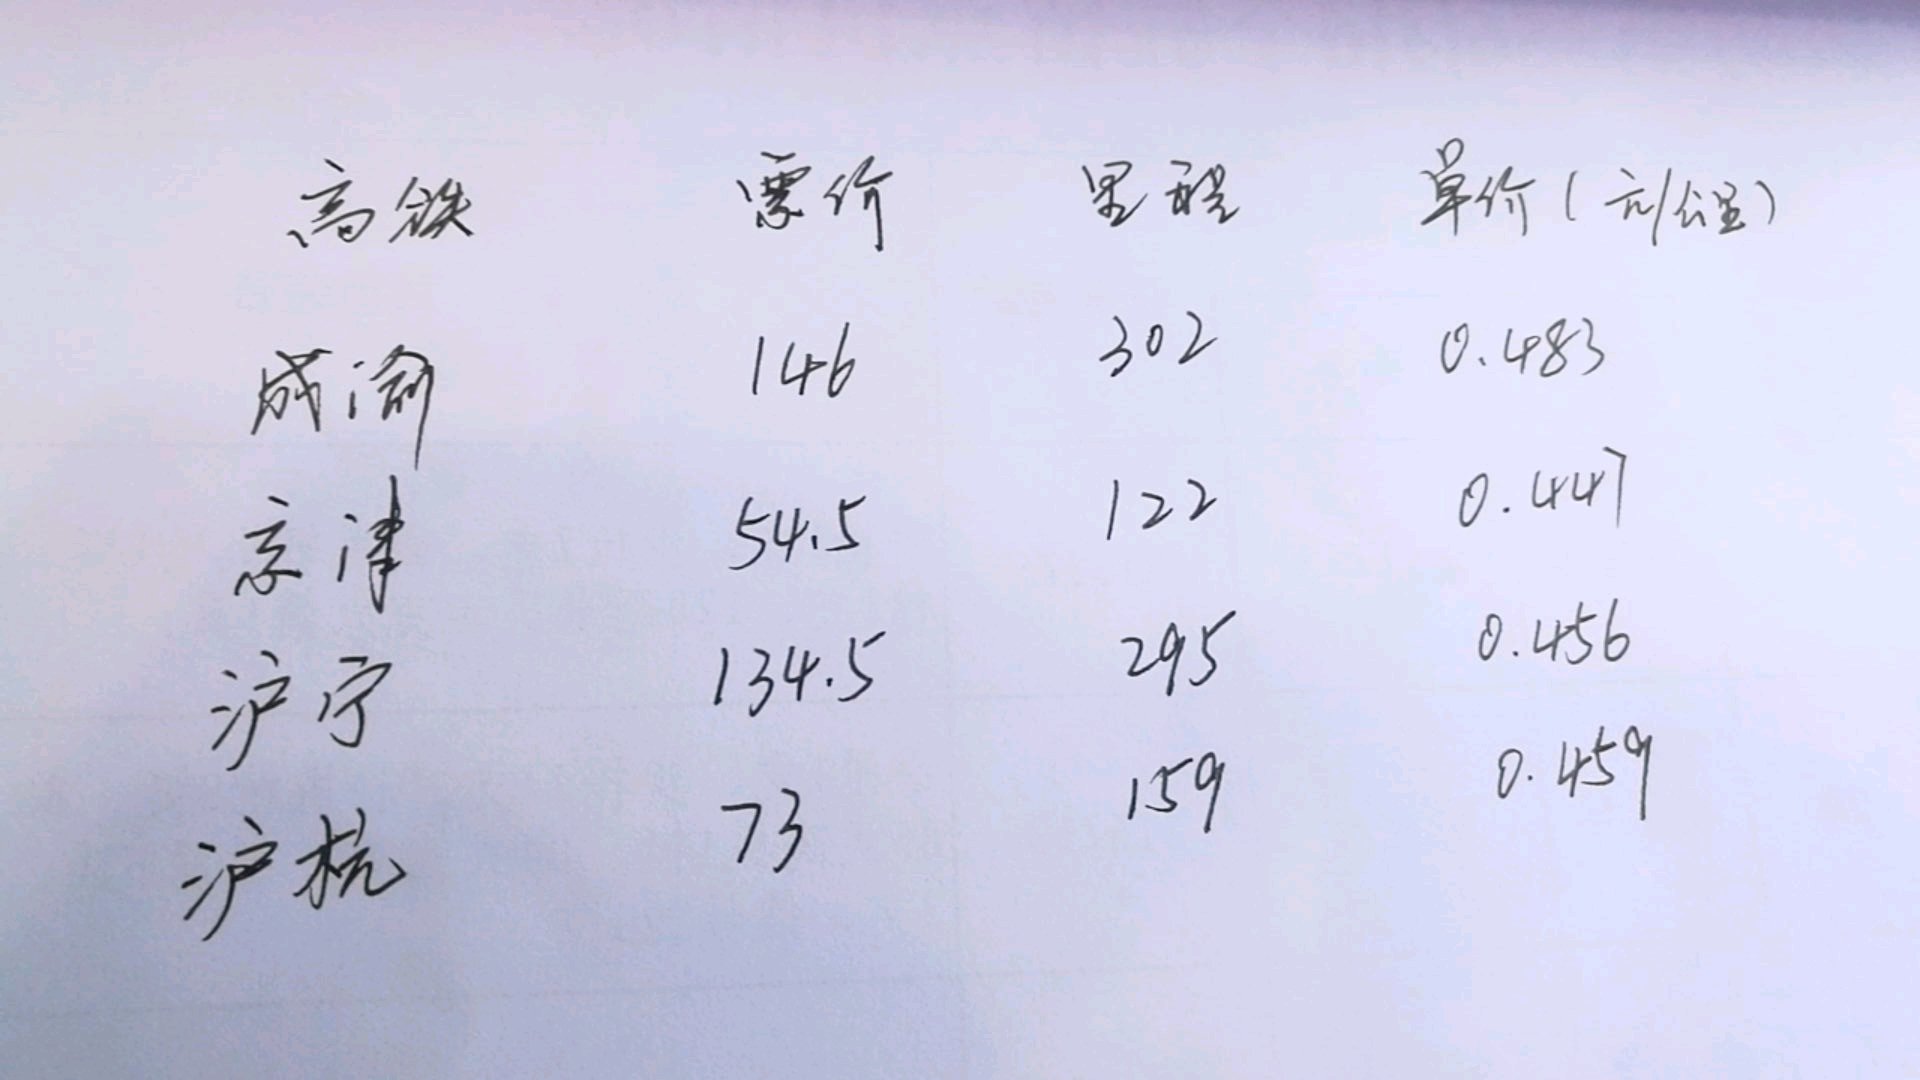 高铁 票价 里程 单价(元/公里)
成渝 146 302 0.483
京津 54.5 122 0.447
沪宁 134.5 295 0.456
沪杭 73 159 0.459